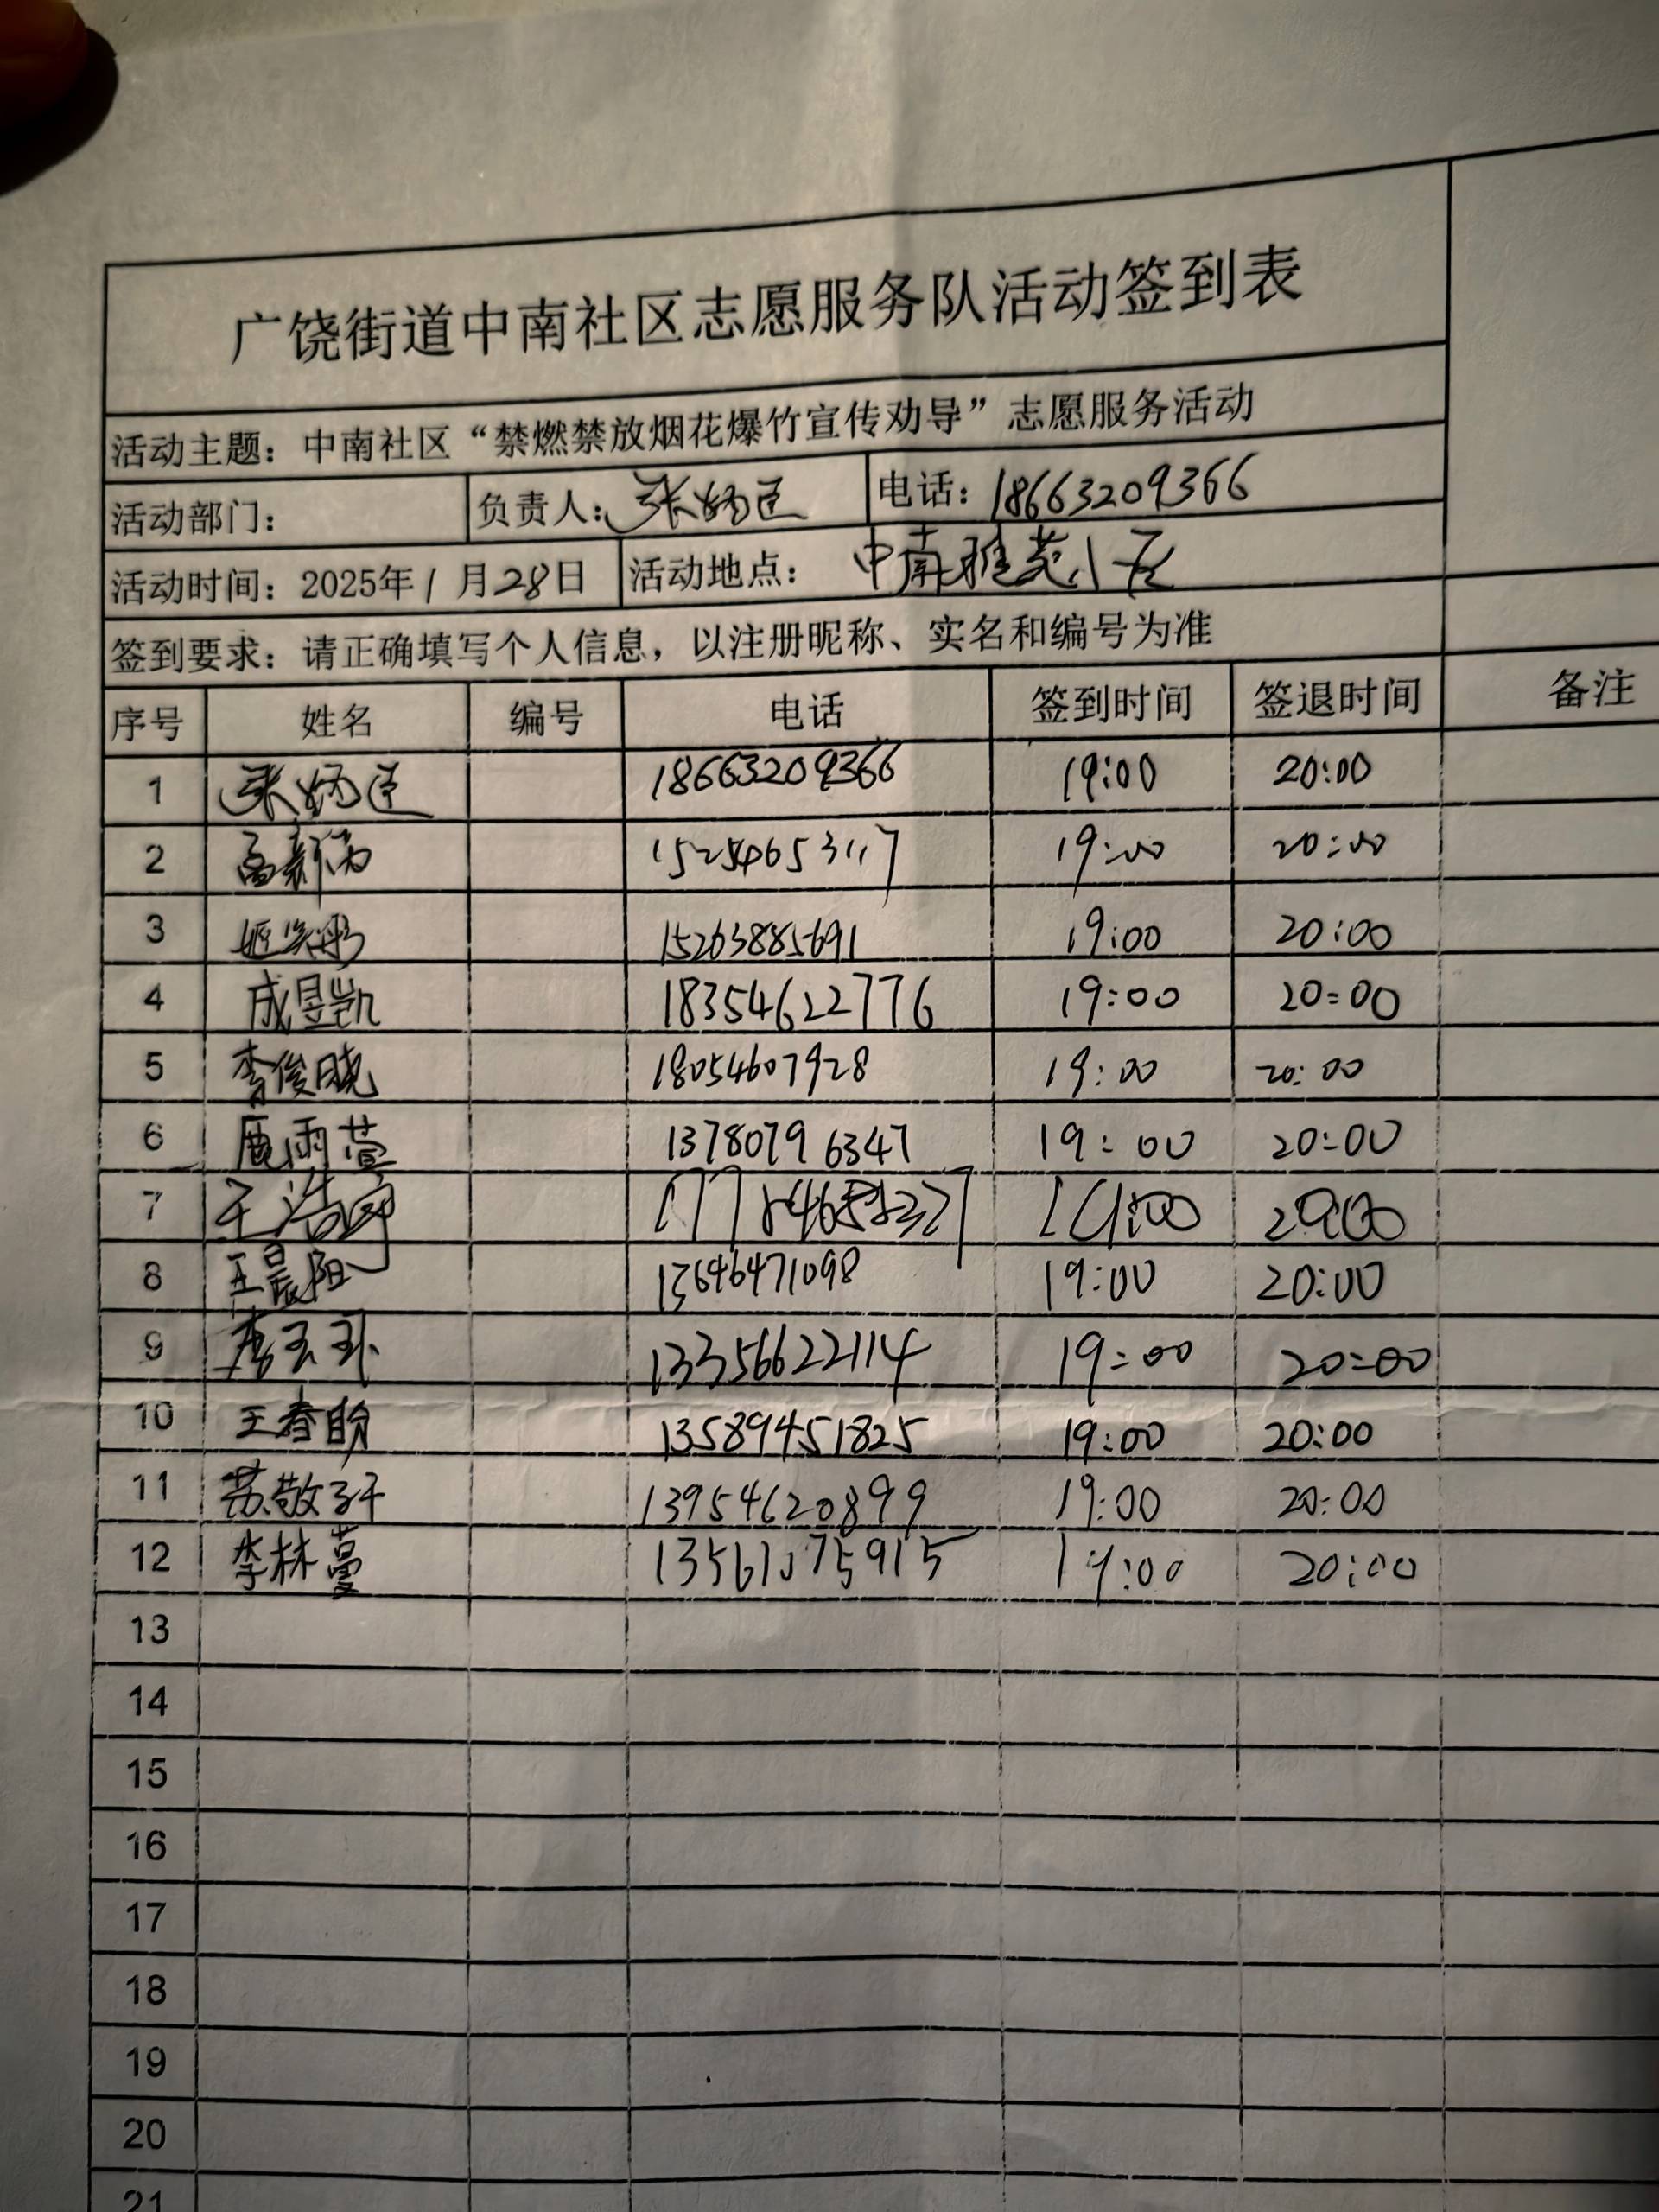 广饶街道中南社区志愿服务队活动签到表
活动主题：中南社区“禁燃禁放烟花爆竹宣传劝导”志愿服务活动
活动部门： 负责人： 电话：18663209366
活动时间：2025年1月28日 活动地点：中南雅苑小区
签到要求：请正确填写个人信息，以注册昵称、实名和编号为准
序号 姓名 编号 电话 签到时间 签退时间 备注
1 18663209366 19:00 20:00
2 15254653117 19:00 20:00
3 15263885691 19:00 20:00
4 成昱凯 18354622776 19:00 20:00
5 李俊晓 18054607928 19:00 20:00
6 雨萱 13780796347 19:00 20:00
7 王浩 19:00 20:00
8 王晨阳 13646471098 19:00 20:00
9 13356622114 19:00 20:00
10 王春盼 13589451825 19:00 20:00
11 苏敬轩 13954620899 19:00 20:00
12 李林蔓 13561075915 19:00 20:00
13
14
15
16
17
18
19
20
21